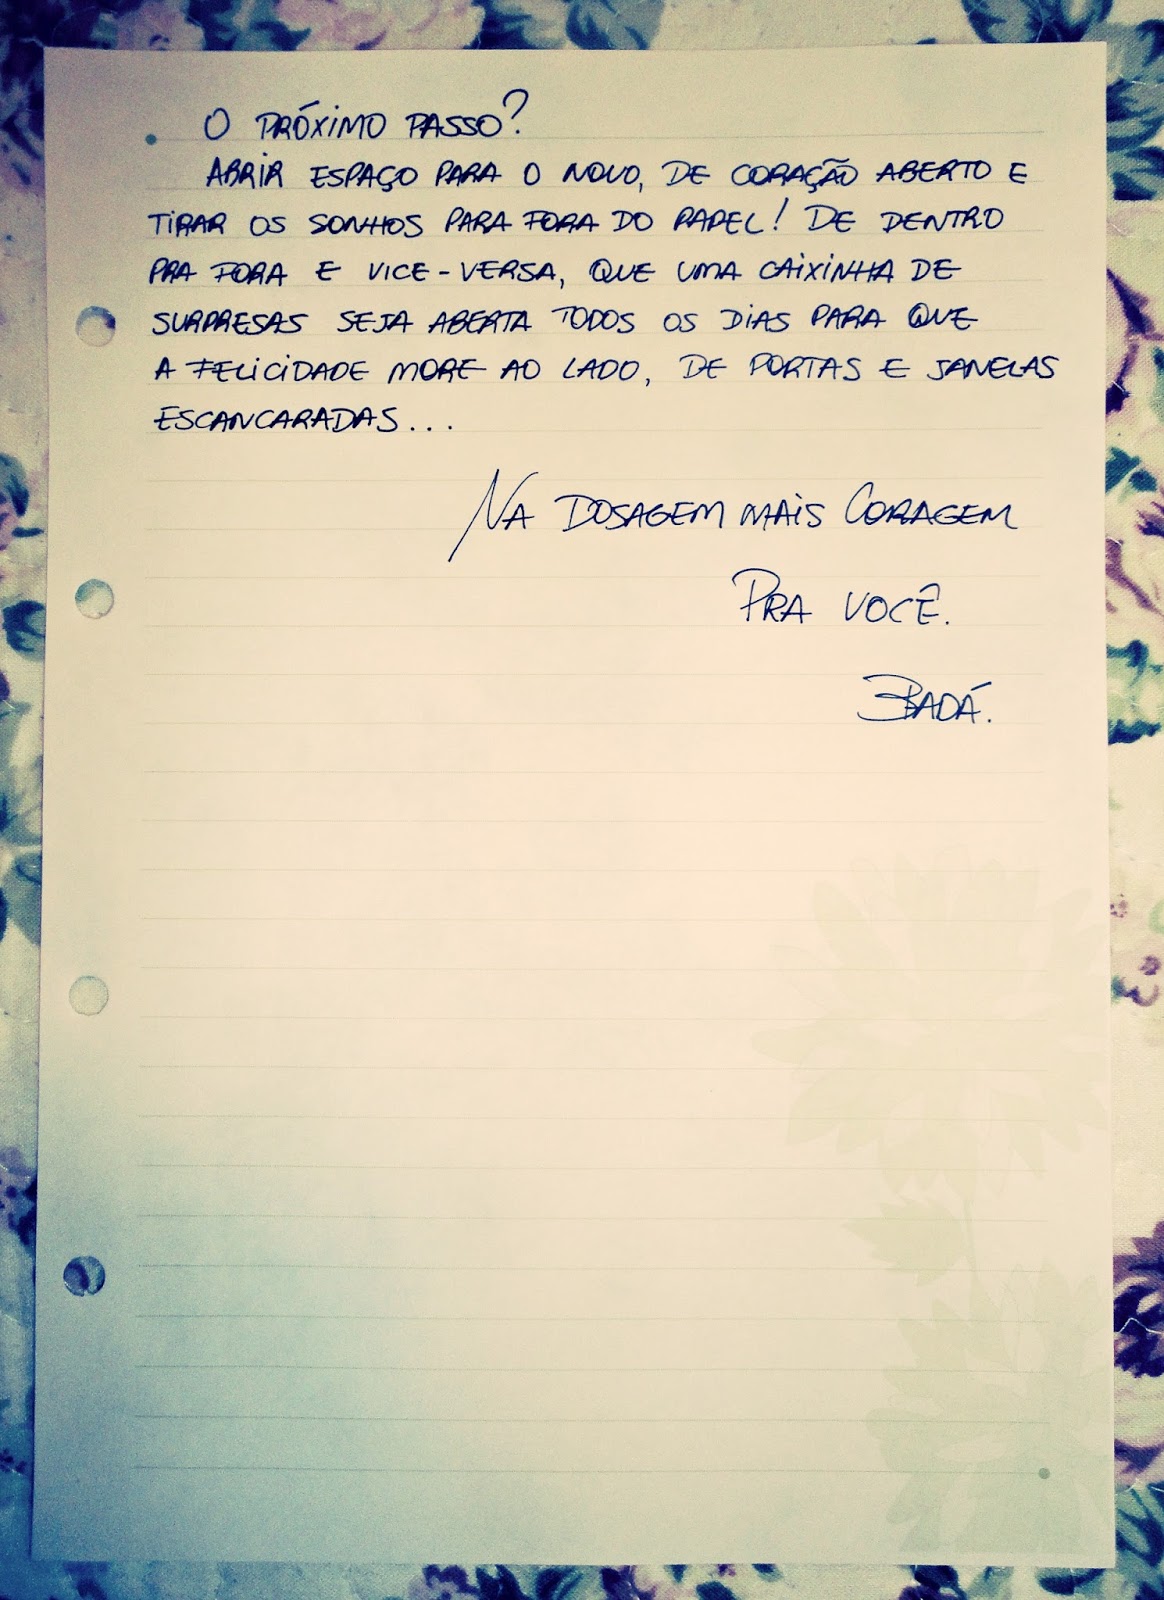 O PRÓXIMO PASSO?
ABRIR ESPAÇO PARA O NOVO, DE CORAÇÃO ABERTO E
TIRAR OS SONHOS PARA FORA DO PAPEL! DE DENTRO
PRA FORA E VICE-VERSA, QUE UMA CAIXINHA DE
SURPRESAS SEJA ABERTA TODOS OS DIAS PARA QUE
A FELICIDADE MORE AO LADO, DE PORTAS E JANELAS
ESCANCARADAS...
NA DOSAGEM MAIS CORAGEM
PRA VOCÊ.
BADÁ.